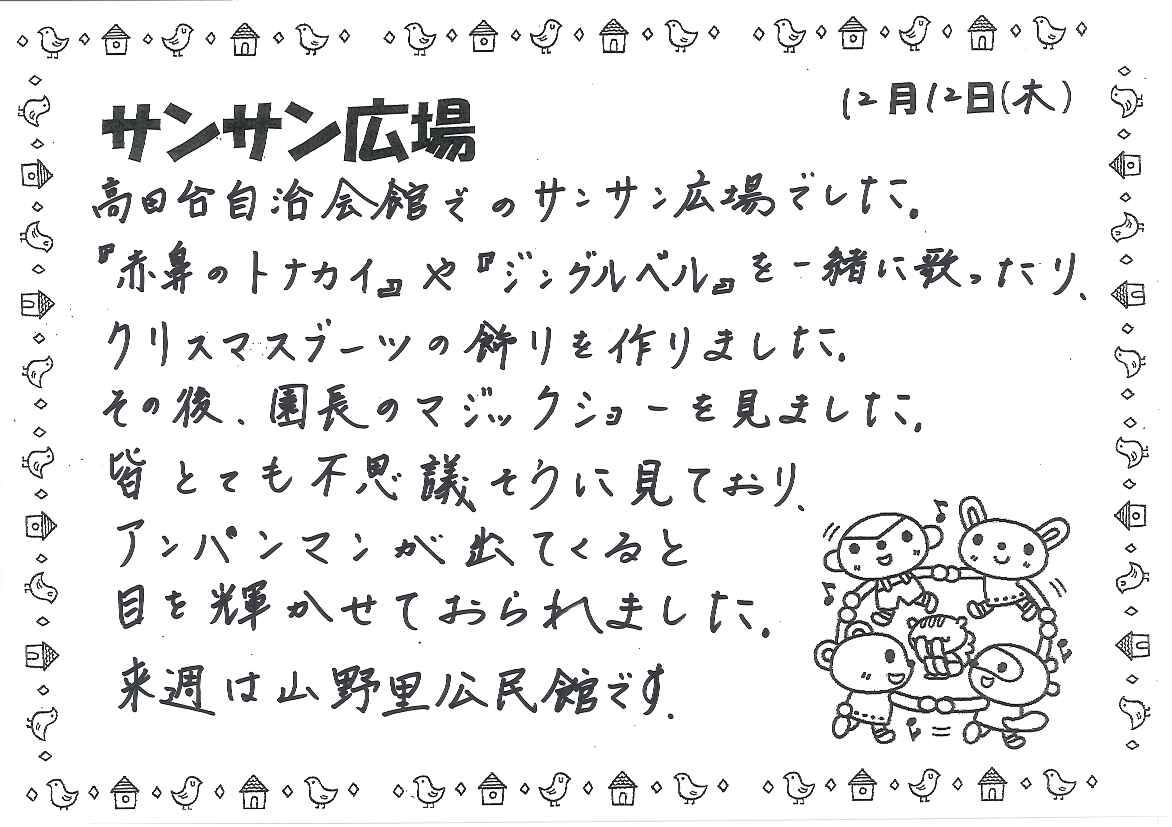 12月12日(木)
サンサン広場
高田台自治会館でのサンサン広場でした。
『赤鼻のトナカイ』や『ジングルベル』を一緒に歌ったり、
クリスマスブーツの飾りを作りました。
その後、園長のマジックショーを見ました。
皆とても不思議そうに見ており、
アンパンマンが出てくると
目を輝かせておられました。
来週は山野里公民館です。